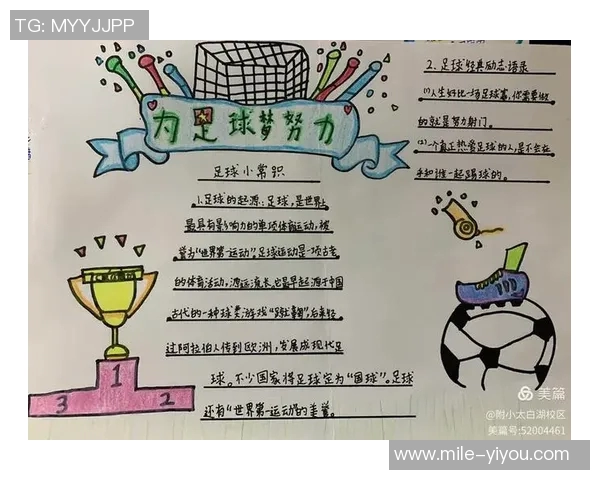 TG: MYYJJPP
为足球梦努力
足球小常识
1、足球的起源:足球,是世界上
最具有影响力的单项体育运动,被
誉为“世界第一运动”,足球运动是一项古老
的体育活动,源远流长。它最早起源于中国
古代的一种球类游戏“蹴鞠”,后来经
过阿拉伯人传到欧洲,发展成现代足
球。不少国家将足球定为“国球”。足球
还有“世界第一运动”的美誉。
2、足球经典励志语录
(1)人生好比一场足球赛,你需要做
的就是努力射门。
(2)一个真正热爱足球的人,是不会在
乎和谁一起踢球的。
1
2
3
美篇
@附小太白湖校区
美篇号:52004461
www.mile-yiyou.com